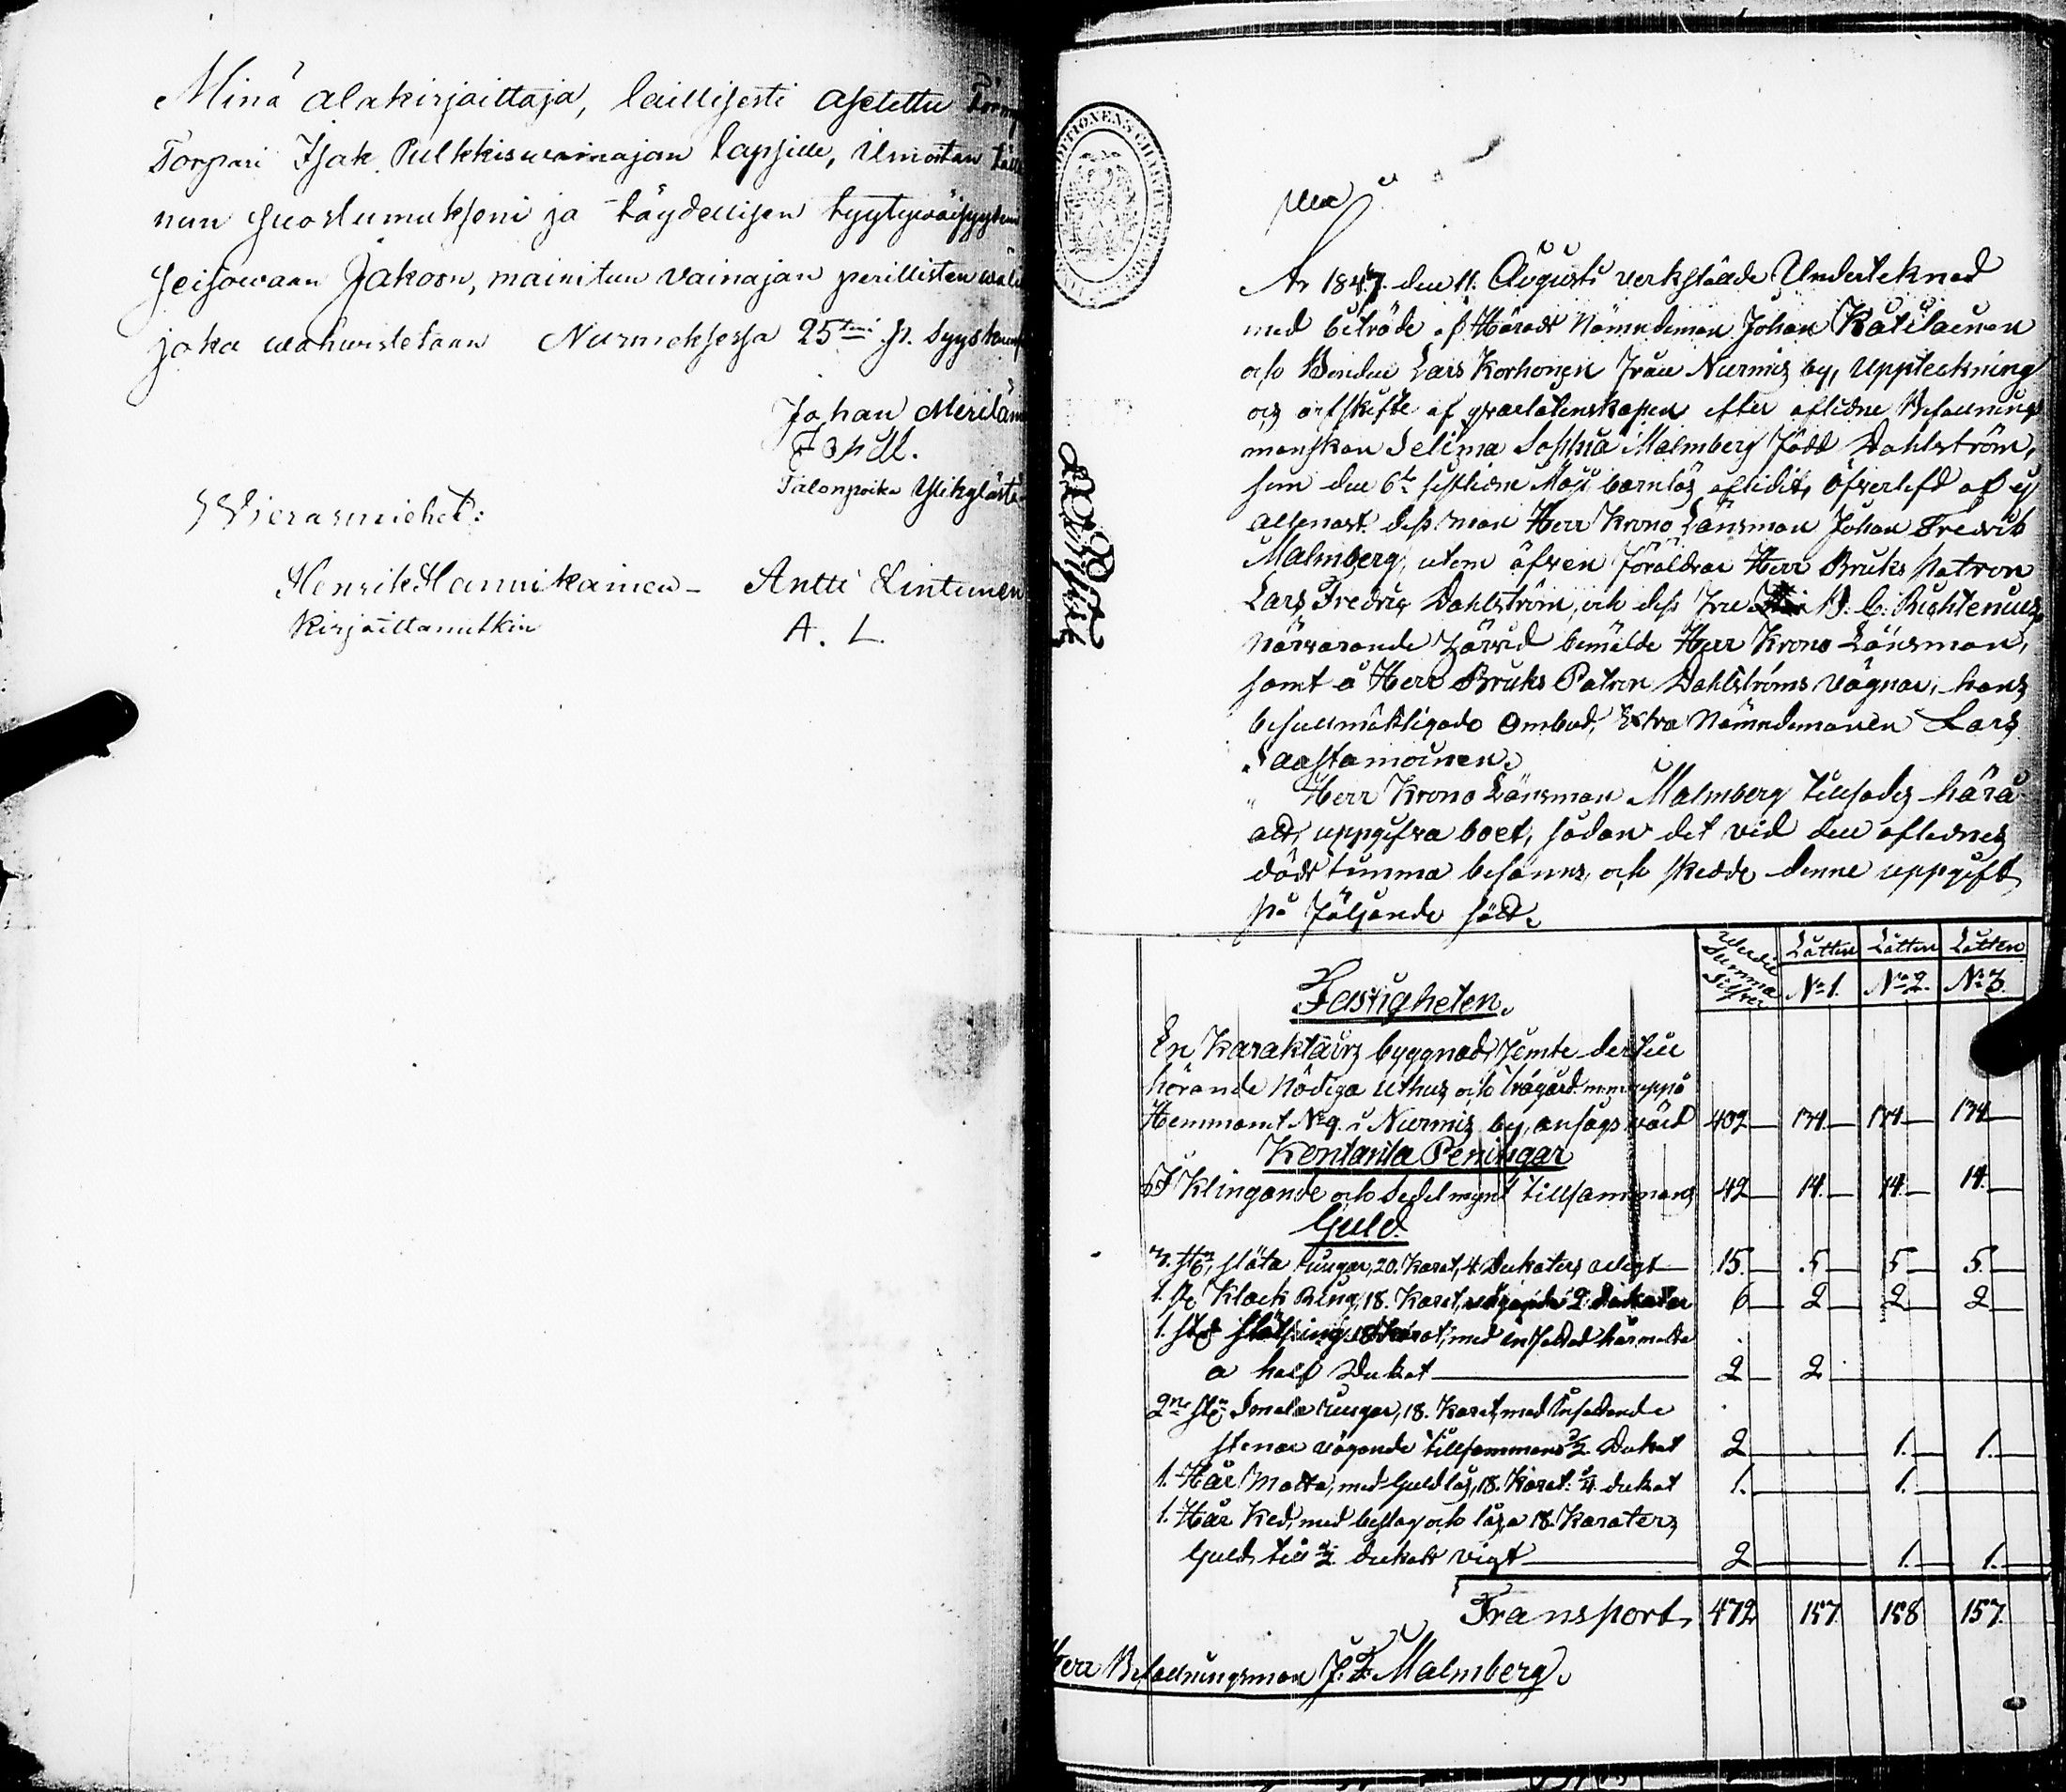 Minä alakirjaittaja, laillisesti asetettu
Torpari Isak Pulkkiswainajan lapsille, ilmoitan
nun suostumukseni ja täydellisen tyytywäisyyteni
seisowaan Jakoon, mainitun vainajan perillisten wäli
joka wahwistetaan Nurmeksessa 25teni p. Syyskuu
Johan Meriläin
Talonpoika Ylikylästä
Wierasmiehet:
Henrik Hannikainen - Antti Lintunen
Kirjoittanutkin A. L.
År 1847 den 11. Augusti verkstälde Underteknad
med biträde af Härads Nämndeman Johan Katilainen
och Bonden Lars Korhonen från Nurmis by, Uppteckning
och arfskifte af qvarlåtenskapen efter aflidne Befallnings
manskan Selima Sophia Malmberg född Dahlström,
som den 6te sistledne Maji barnlös aflidit, öfverlefd af ej
allenast dess man Herr Krono Länsman Johan Fredrik
Malmberg, utom äfven föräldrar Herr Bruks Patron
Lars Fredric Dahlström, och dess Fru
Närvarande härvid bemälde Herr Krono Länsman,
samt å Herr Bruks Patron Dahlströms vägnar, hans
befullmäktigade Ombud, Extra Nämndemannen Lars
Saastamoinen.
Herr Krono Länsman Malmberg tillsades härå
att uppgifva boet, sådan det vid den aflednes
dödstimma befanns, och skedde denne uppgift
på följande sätt.
Summa Silfver Lotten Lotten Lotten
No 1. No 2. No 3.
Fastigheten.
En Karaktärs byggnad jemte dertill
hörande nödiga uthus och trägård m.m. uppå
Hemmanet No 9. i Nurmis by, ansågs värd 402 134 134 134
Kontanta Penningar
I Klingande och Sedel mynt tillsammans 42 14. 14. 14.
Guld.
3. st släta ringar, 20. Karat, 4 Dukaters vigt 15. 5 5 5.
1. st Klack Ring, 18. Karat, 2 Dukater 6 2 2 2
1. st slät ring 18 Karat, med en
a half Dukat 2 2
2ne st Smala ringar, 18. Karat, med infattade
stenar vägande tillsammans 1/2 Dukat 2 1. 1.
1. Hår Matta, med Guldlås, 18. Karat: 1/4 dukat 1. 1.
1. Hår Ked, med beslag och lås a 18. Karaters
Guld, till 1/2 dukats vigt 2 1. 1.
Transport, 472 157 158 157.
Herr Befallningsman J. F. Malmberg.